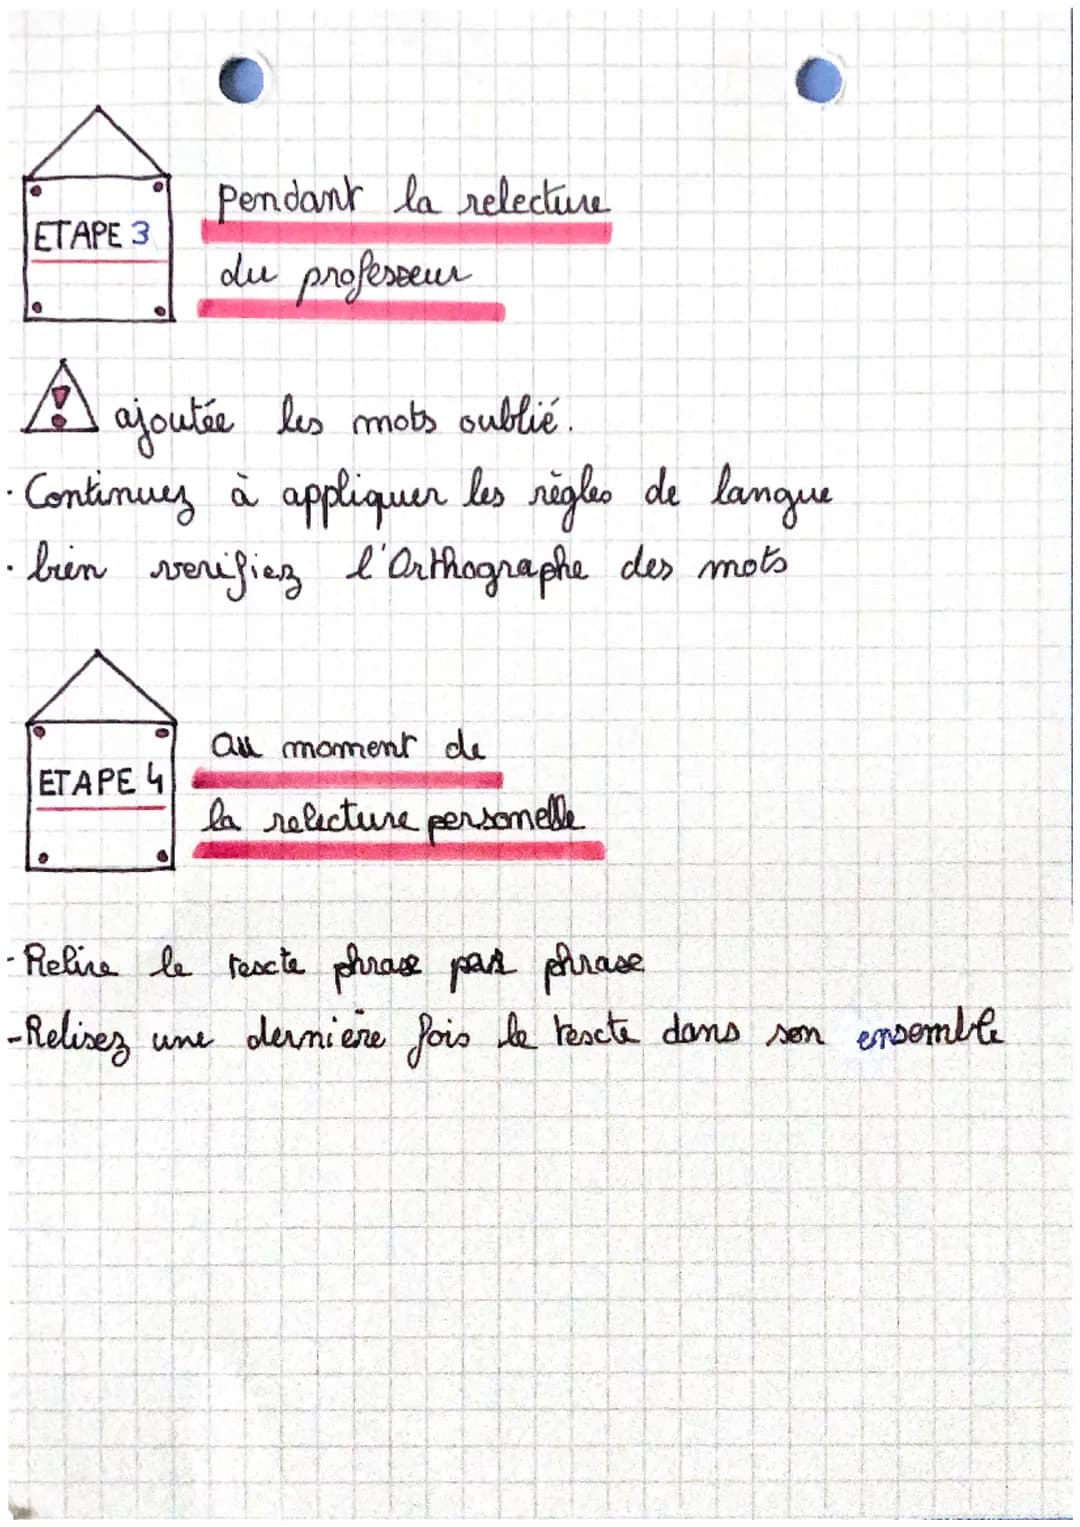 ETAPE 3
Pendant la relecture
du professeur
! ajoutée les mots oublié.
· Continuez à appliquer les règles de langue
· bien verifiez l'Orthographe des mots
ETAPE 4
au moment de
la relecture personelle
- Relire le texte phrase par phrase
- Relisez une dernière fois le texte dans son ensemble